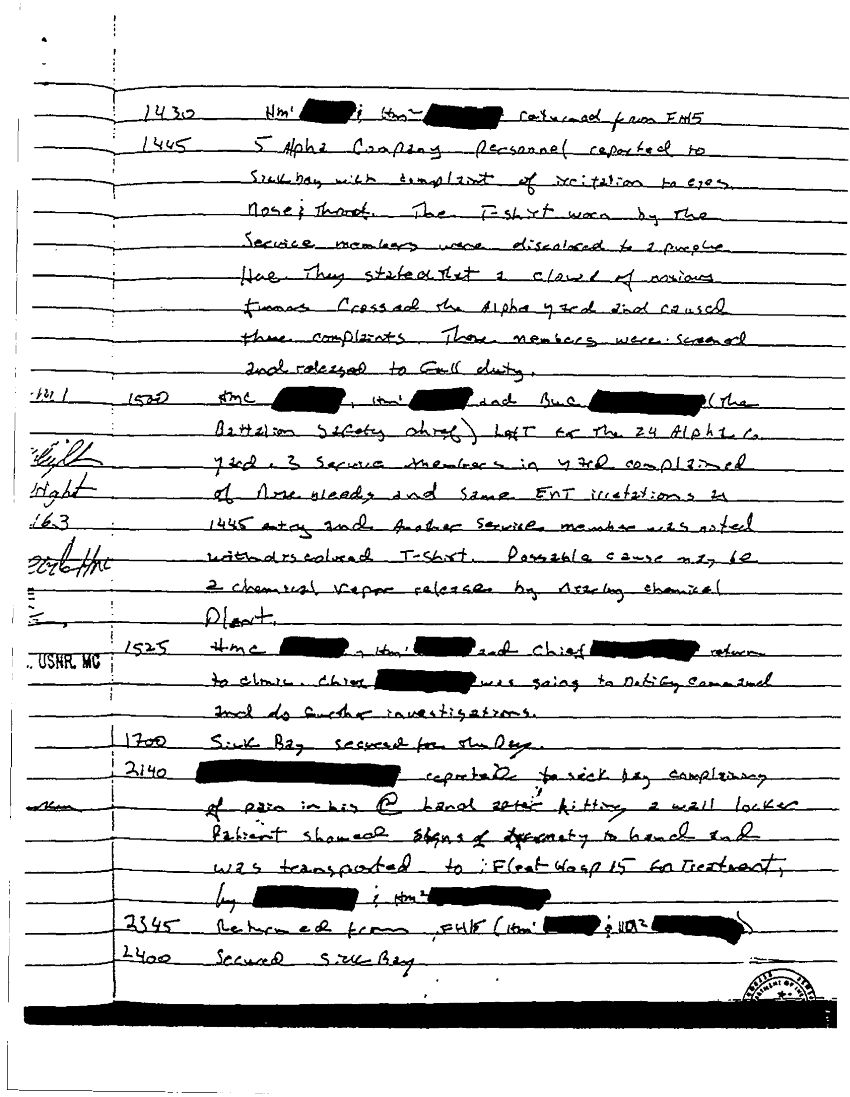 1430 Hm1 & Hm2 returned from FH15
1445 5 Alpha Company Personnel reported to
Sick bay with complaint of irritation to eyes
Nose & Throat. The T-shirt worn by the
Service members were discolored to a purple
Hue. They stated that a cloud of noxious
fumes Crossed the Alpha yard and caused
these complaints Those members were screened
and released to full duty.
1500 HMC , Hm1 and BUC (the
Battalion Safety chief) Left for the 24 Alpha Co.
yard. 3 Service members in yard complained
of Nose bleeds and same ENT irretations as
1445 entry and Another Service member was noted
with discolored T-shirt. Possable cause may be
a chemical vapor release by Nearby chemical
Plant.
1525 HMC , Hm1 and Chief return
. USNR, MC
to clinic. Chief was going to Notify Command
and do further investigations.
1700 Sick Bay secured for the Day.
2140 reported to sick bay complaining
of pain in his R hand after hitting a wall locker
Patient showed signs of to hand and
was transported to Fleet Hosp 15 for Treatment,
by & Hm2
2345 Returned from FH15 (Hm1 & HM2 )
2400 Secured Sick Bay